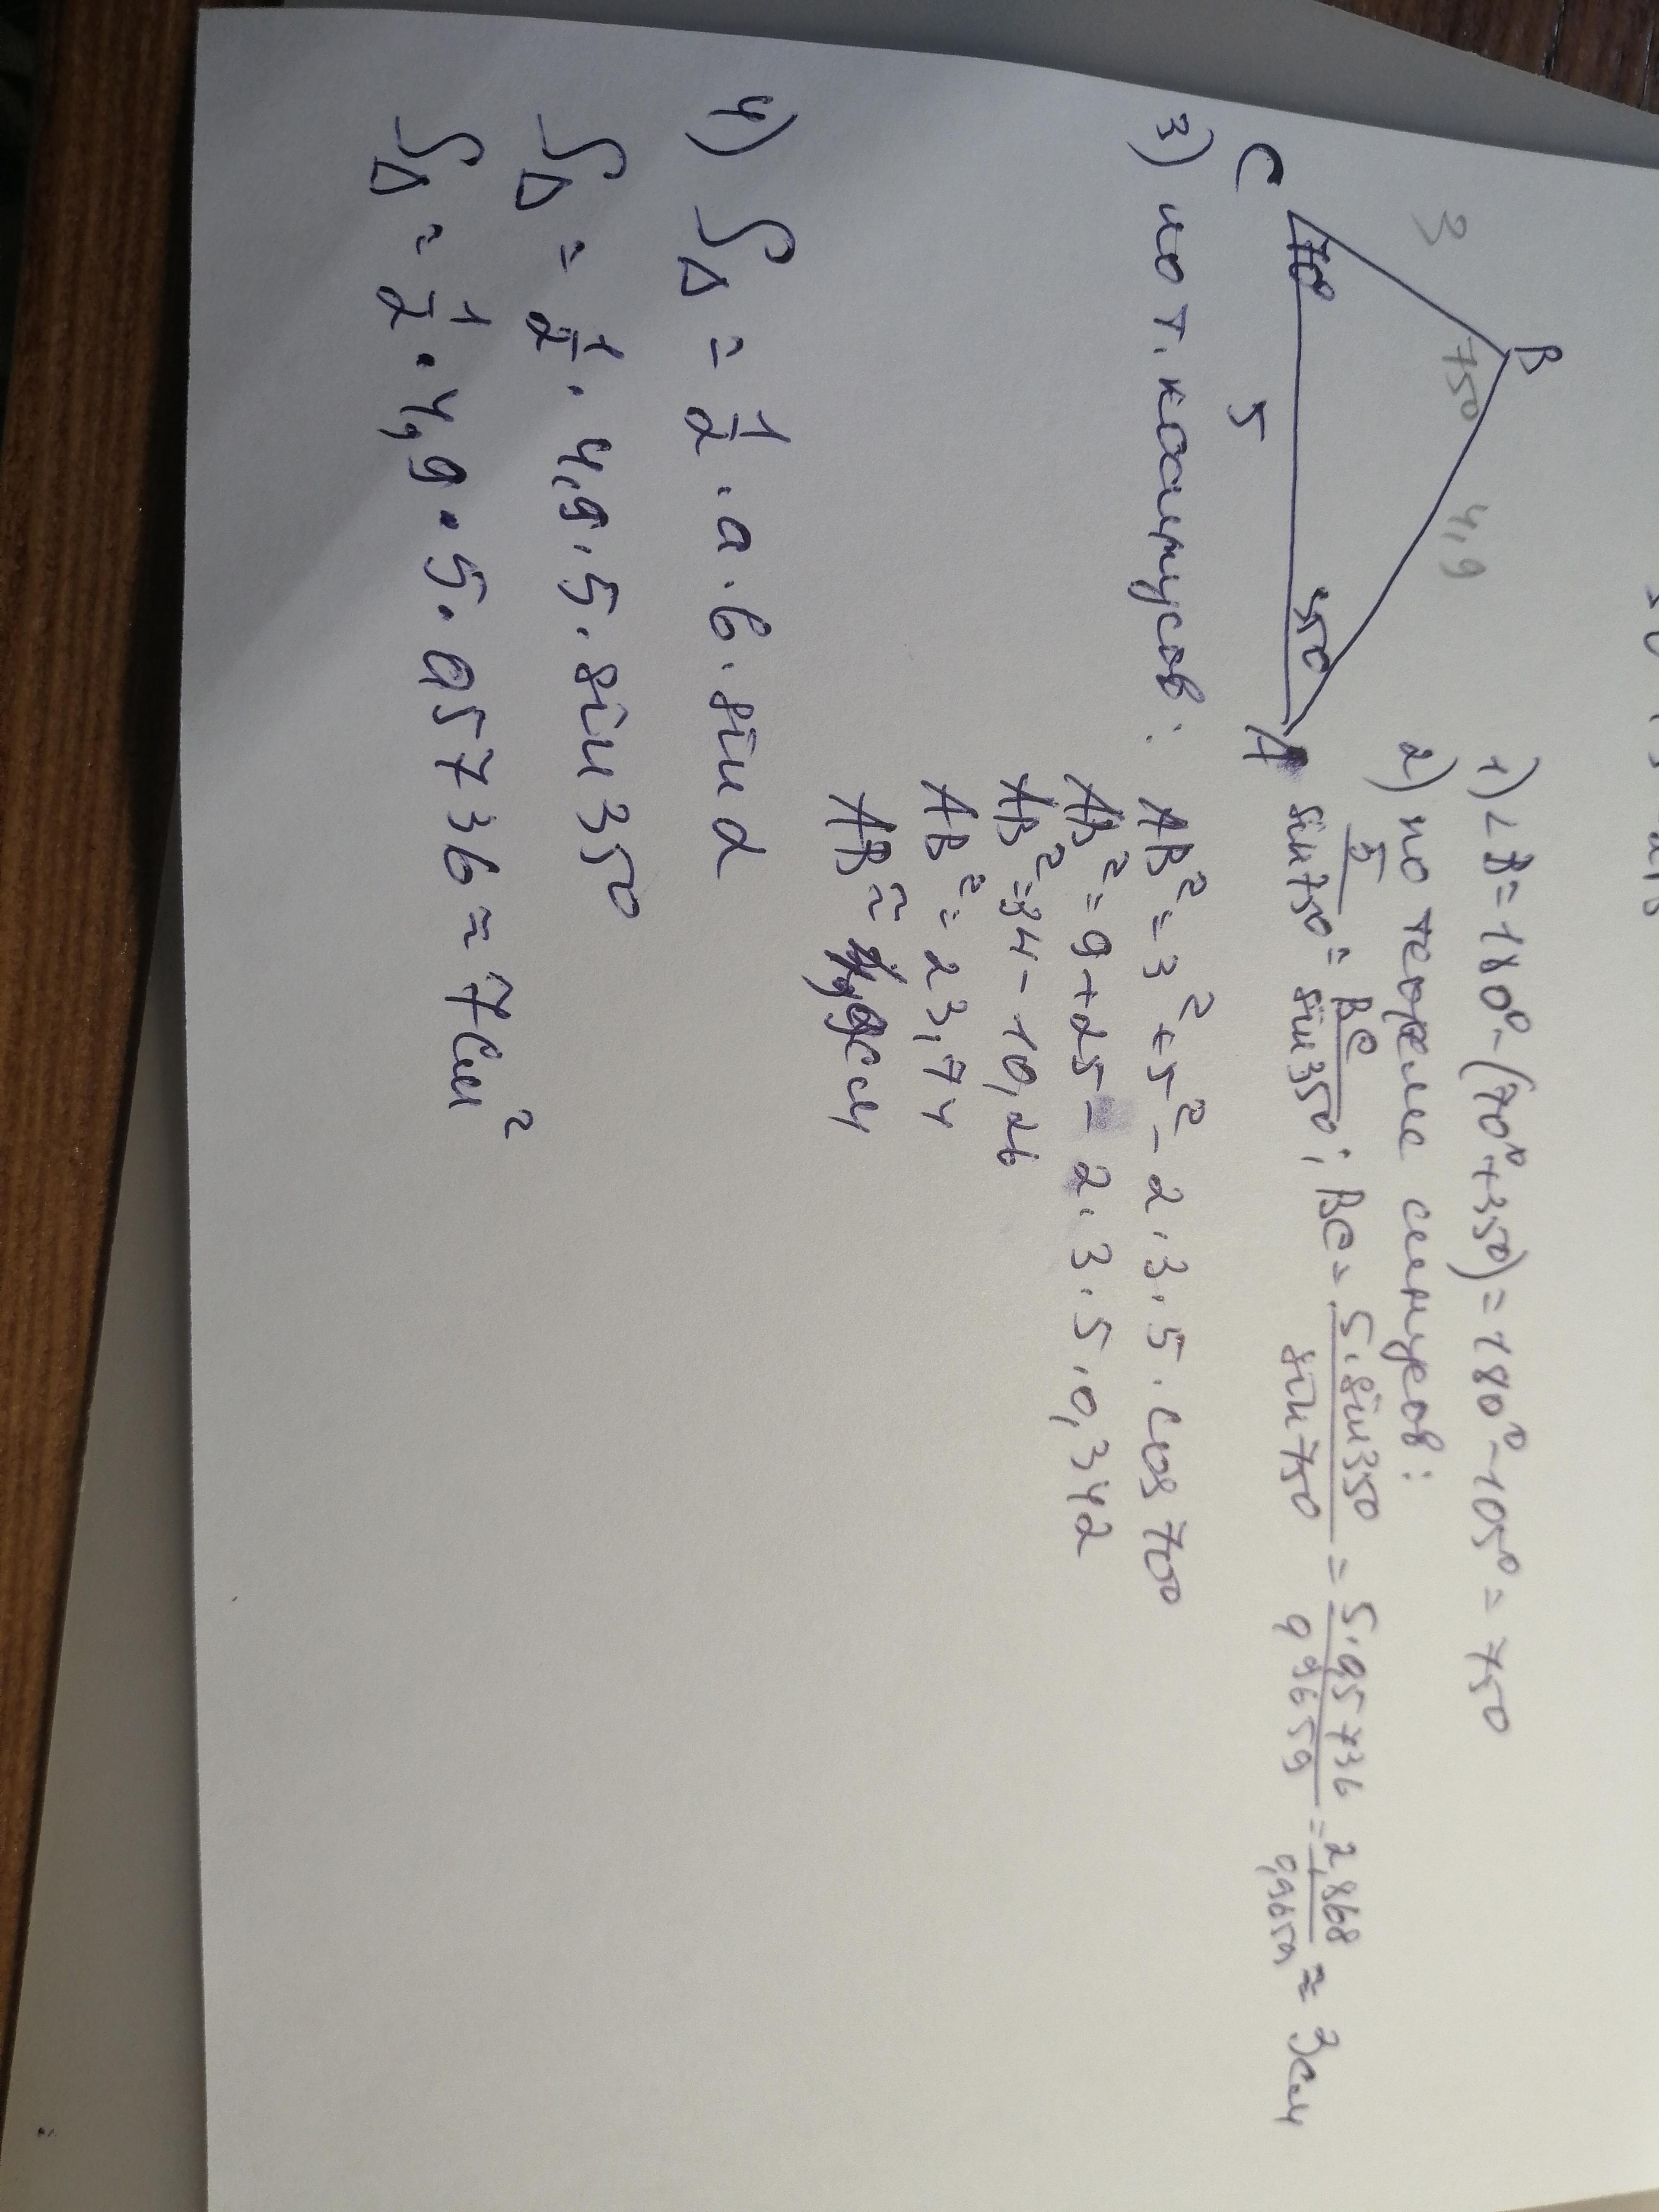 B
3
75°
4,9
C
70°
35°
A
5
1) ∠B = 180° - (70° + 35°) = 180° - 105° = 75°
2) по теореме синусов:
5/sin75° = BC/sin35°; BC = 5·sin35°/sin75° = 5·0,5736/0,9659 = 2,868/0,9659 ≈ 3см
3) по т. косинусов: AB² = 3² + 5² - 2·3·5·cos70°
AB² = 9 + 25 - 2·3·5·0,342
AB² = 34 - 10,26
AB² = 23,74
AB ≈ см
4) S△ = 1/2 · a · b · sin α
S△ = 1/2 · 4,9 · 5 · sin35°
S△ = 1/2 · 4,9 · 5 · 0,5736 ≈ 7см²